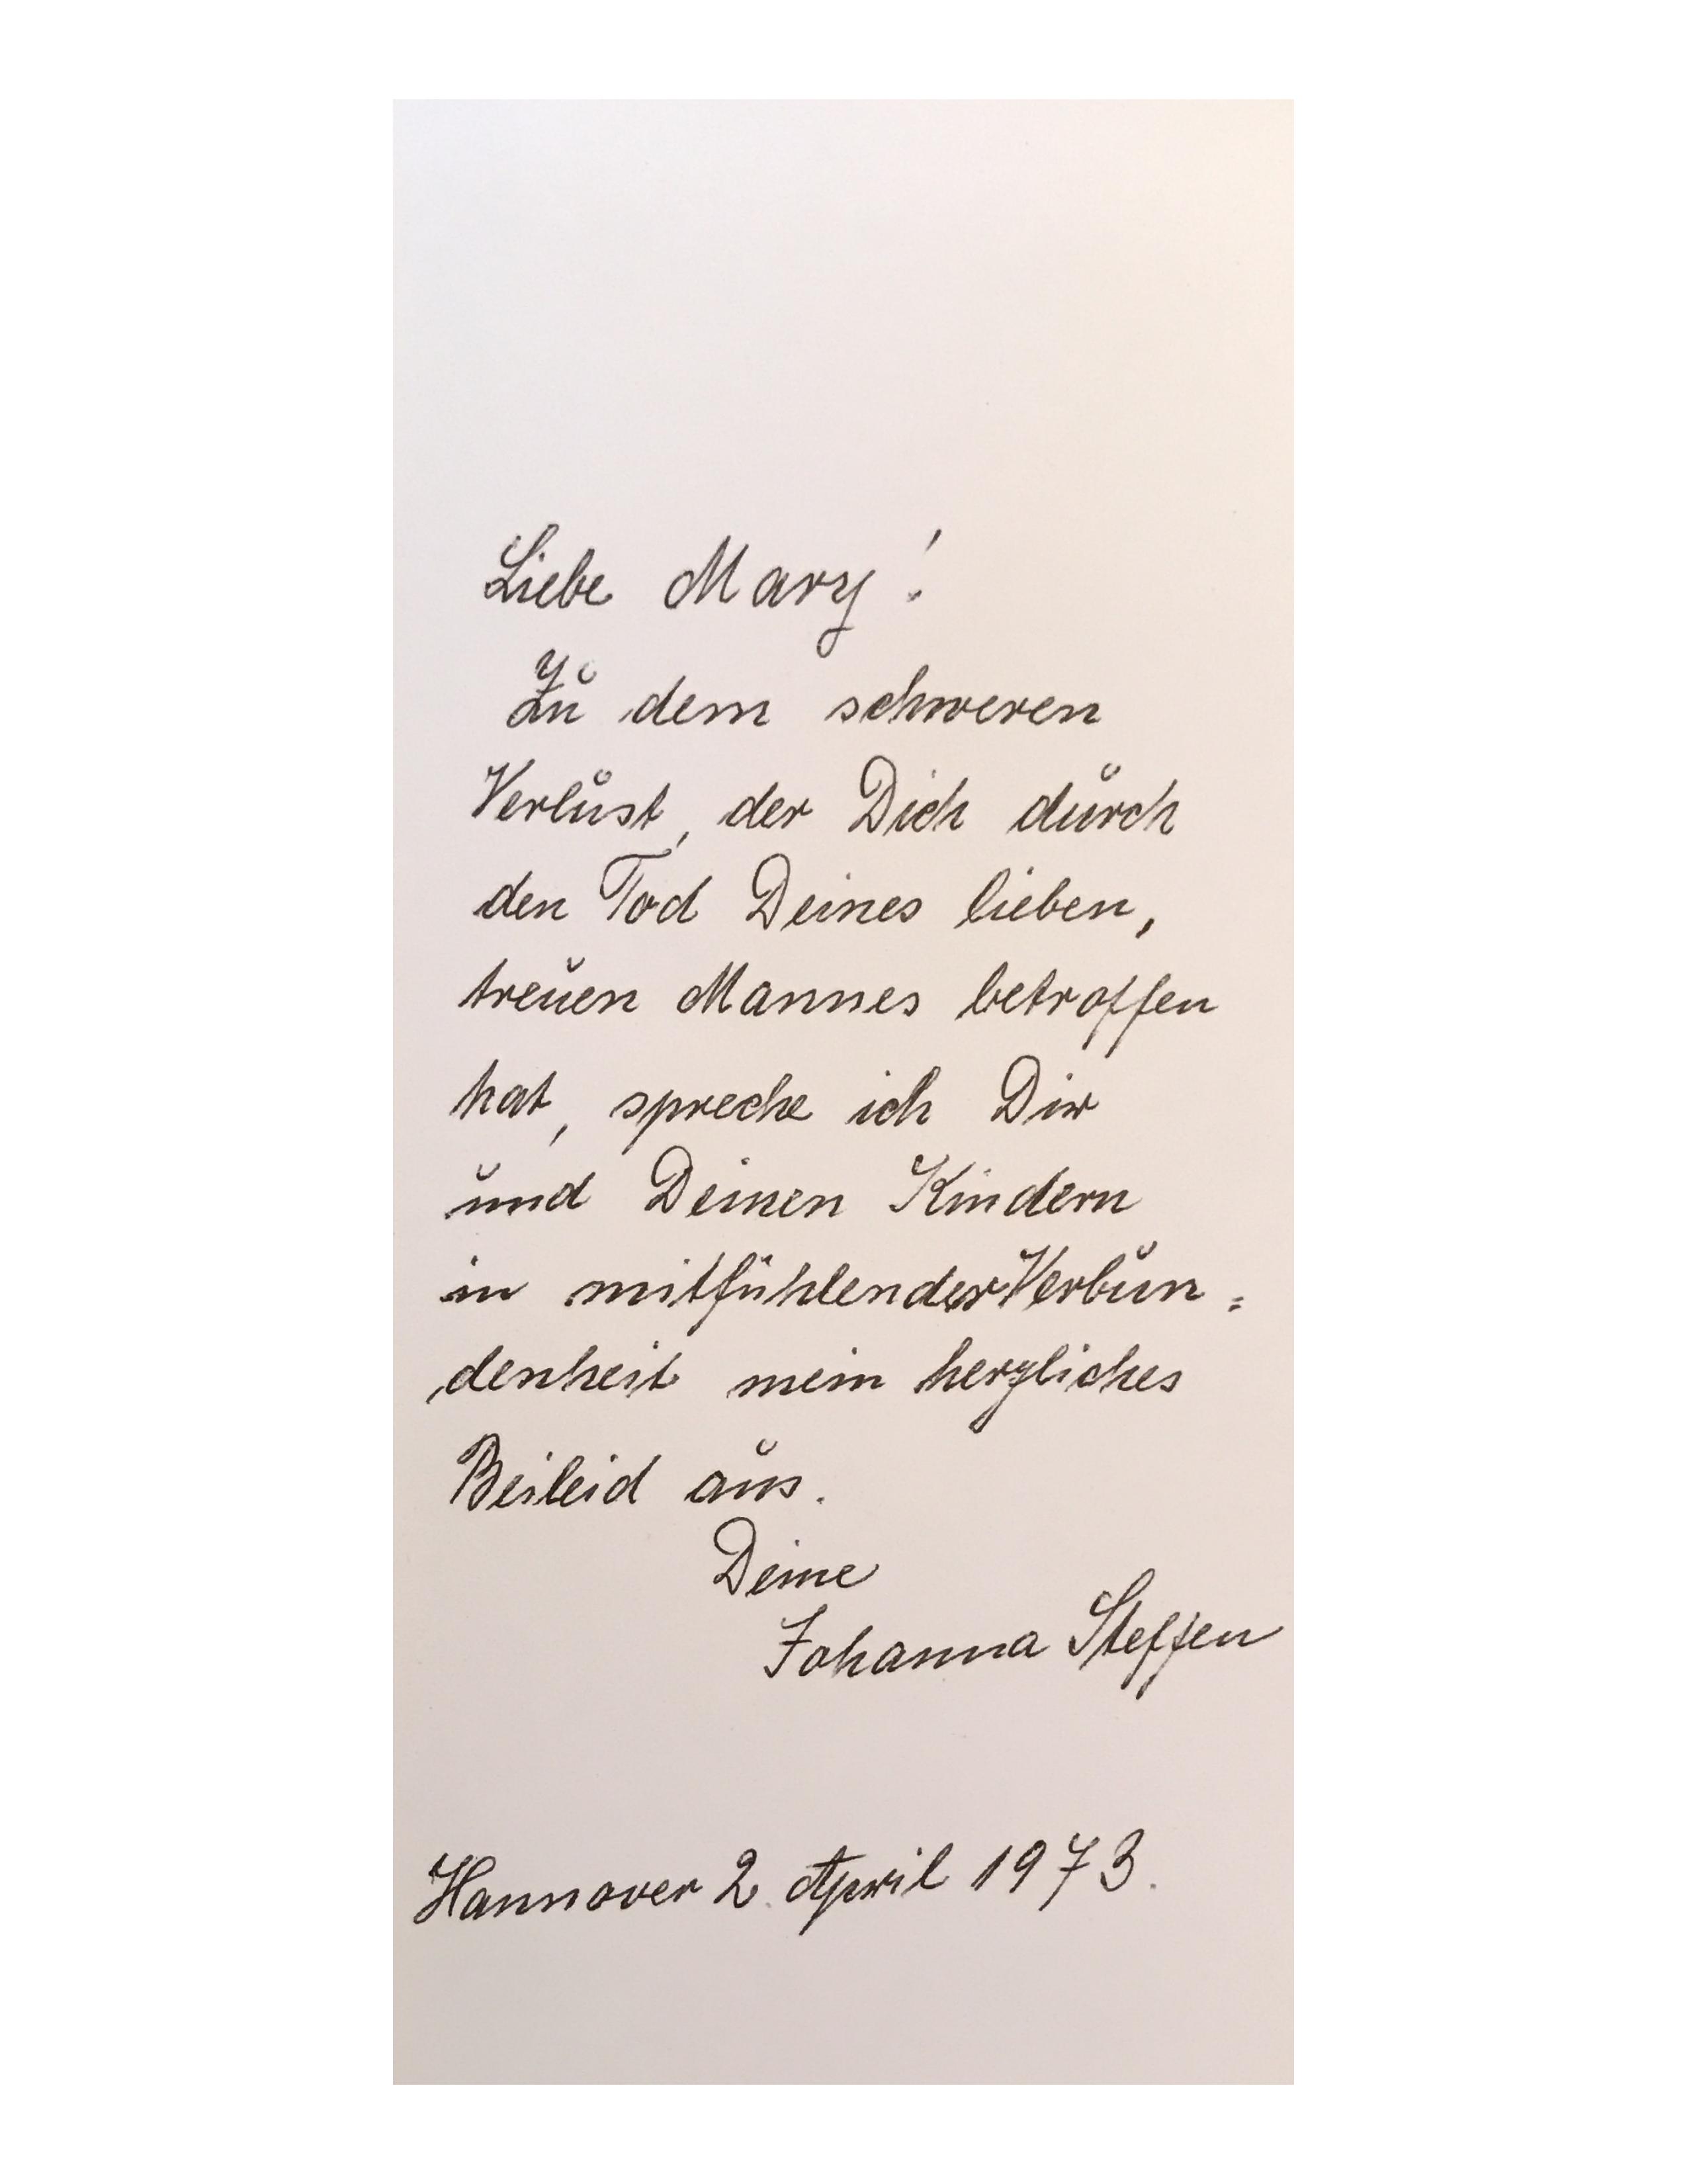 Liebe Mary!
Zu dem schweren
Verlust, der Dich durch
den Tod Deines lieben,
treuen Mannes betroffen
hat, spreche ich Dir
und Deinen Kindern
in mitfühlender Verbun=
denheit mein herzliches
Beileid aus.
Deine
Johanna Steffen
Hannover 2. April 1973.